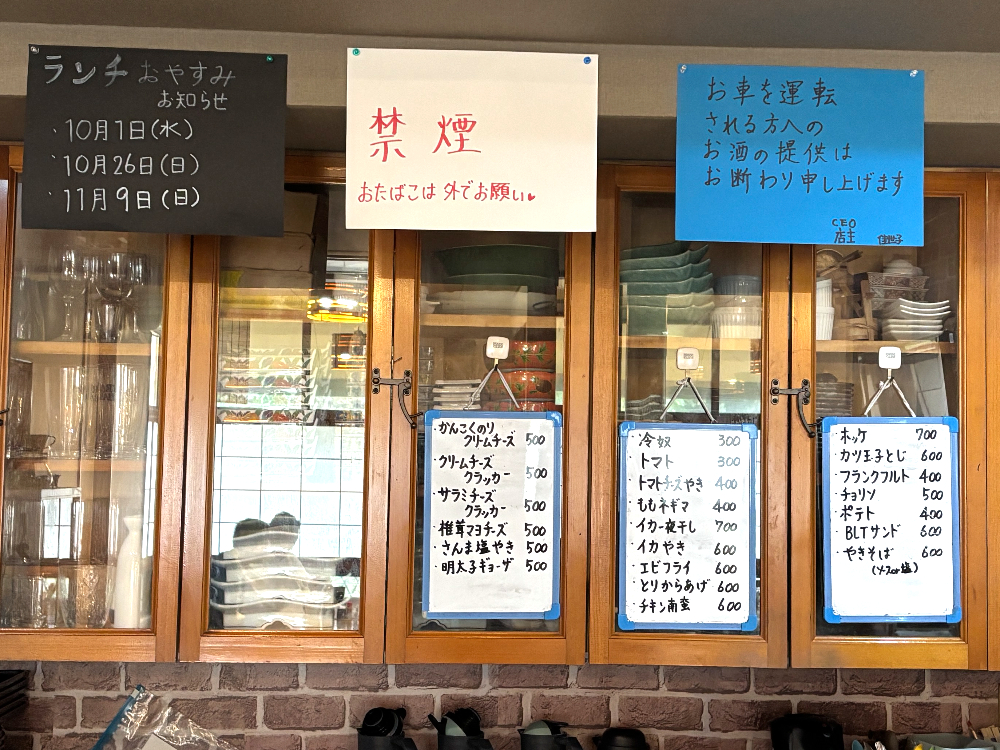 ランチ おやすみ
お知らせ
・10月1日(水)
・10月26日(日)
・11月9日(日)
禁煙
おたばこは外でお願い♥
お車を運転
される方への
お酒の提供は
お断わり申し上げます
CEO
店主
・かんこくのり
クリームチーズ 500
・クリームチーズ
クラッカー 500
・サラミチーズ
クラッカー 500
・椎茸マヨチーズ 500
・さんま塩やき 500
・明太子ギョーザ 500
・冷奴 300
・トマト 300
・トマトチーズやき 400
・ももネギマ 400
・イカ一夜干し 700
・イカやき 600
・エビフライ 600
・とりからあげ 600
・チキン南蛮 600
・ホッケ 700
・カツ玉子とじ 600
・フランクフルト 400
・チョリソ 500
・ポテト 400
・BLTサンド 600
・やきそば 600
(ソースor塩)